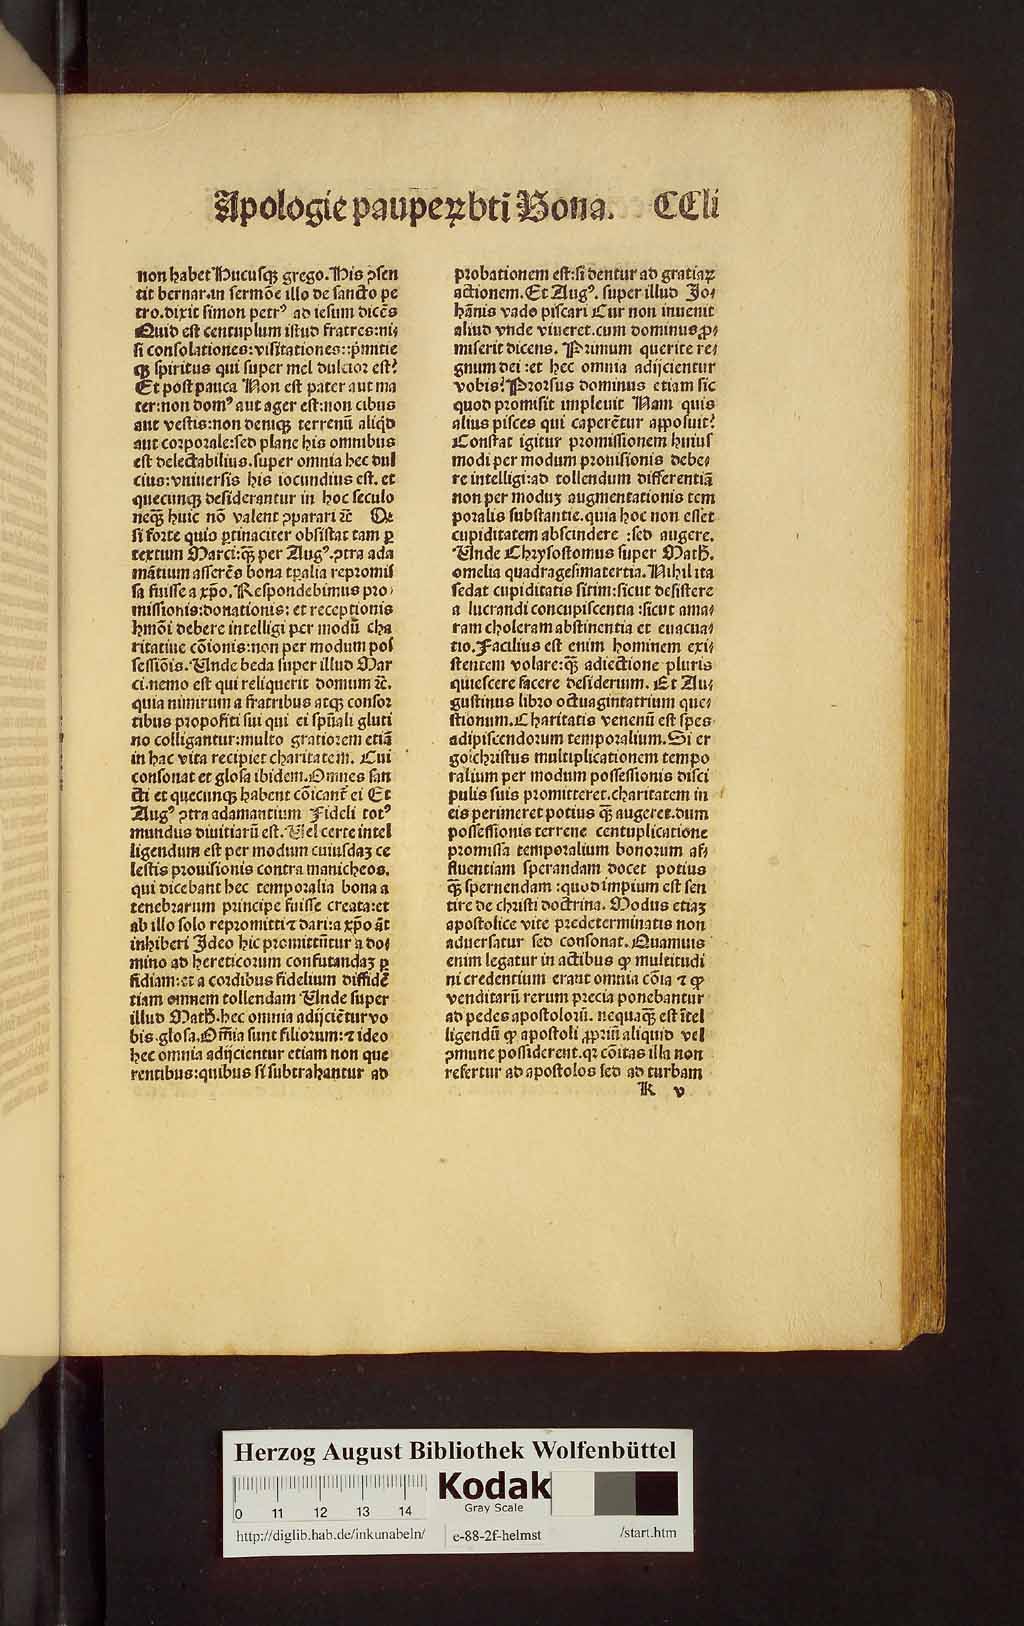 Apologie pauperꝝ bti Bona. CCli
non habet Hucusqꝫ grego. His ꝯsen
tit bernar. in sermõe illo de sancto pe
tro. dixit simon petrꝰ ad iesum dicẽs
Quid est centuplum istud fratres: ni⸗
si consolationes: visitationes:: p̃mitie
qꝫ spiritus qui super mel dulcior est?
Et post pauca Non est pater aut ma
ter: non domꝰ aut ager est: non cibus
aut vestis: non deniqꝫ terrenũ aliqͥd
aut corporale: sed plane his omnibus
est delectabilius. super omnia hec dul
cius: vniuersis his iocundius est. et
quecunqꝫ desiderantur in hoc seculo
neqꝫ̃ huic nõ valent ꝯparari ⁊c̃ Qe
si forte quis ꝑtinaciter obsistat tam ꝑ
textum Marci: qꝫ̃ per Augꝰ. ꝯtra ada
mãtium asserẽs bona tp̃alia repromis
sa fuisse a xp̃o. Respondebimus pro⸗
missionis: donationis: et receptionis
hmõi debere intelligi per modũ cha
ritatiue cõionis: non per modum pos
sessiõis. Unde beda super illud Mar
ci. nemo est qui reliquerit domum ⁊c̃.
quia nimirum a fratribus atqꝫ consor
tibus propositi sui qui ei spũali gluti
no colligantur: multo gratiorem etiã
in hac vita recipiet charitatem. Cui
consonat et glosa ibidem. Omnes san
cti et quecunqꝫ habent cõicant̃ ei Et
Augꝰ ꝯtra adamantium Fideli totꝰ
mundus diuitiarũ est. Uel certe intel
ligendum est per modum cuiusdaꝫ ce
lestis prouisionis contra manicheos.
qui dicebant hec temporalia bona a
tenebrarum principe fuisse creata: et
ab illo solo repromitti ⁊ dari: a xp̃o ãt
inhiberi Ideo hic promittũtur a do⸗
mino ad hereticorum confutandaꝫ ꝑ
fidiam: et a cordibus fidelium diffidẽ
tiam omnem tollendam Unde super
illud Math̃. hec omnia adijciẽtur vo
bis. glosa. Om̃ia sunt filiorum: ⁊ ideo
hec omnia adijcientur etiam non que
rentibus: quibus si subtrahantur ad
probationem est: si dentur ad gratiaꝝ
actionem. Et Augꝰ. super illud Jo⸗
hãnis vado piscari Cur non inuenit
aliud vnde viueret. cum dominus ꝓ⸗
miserit dicens. Primum querite re⸗
gnum dei: et hec omnia adijcientur
vobis? Prorsus dominus etiam sic
quod promisit impleuit Nam quis
alius pisces qui caperẽtur apposuit?
Constat igitur promissionem huius
modi per modum prouisionis debe⸗
re intelligi: ad tollendum differentiã
non per moduꝫ augmentationis tem
poralis substantie. quia hoc non esset
cupiditatem abscindere: sed augere.
Unde Chrysostomus super Math̃.
omelia quadragesimatertia. Nihil ita
sedat cupiditatis sitim: sicut desistere
a lucrandi concupiscentia: sicut ama⸗
ram choleram abstinentia et euacua⸗
tio. Facilius est enim hominem exi⸗
stentem volare: qꝫ̃ adiectione pluris
quiescere facere desiderium. Et Au⸗
gustinus libro octuagintatrium que⸗
stionum. Charitatis venenũ est spes
adipiscendorum temporalium. Si er
go christus multiplicationem tempo
ralium per modum possessionis disci
pulis suis promitteret. charitatem in
eis perimeret potius qꝫ̃ augeret. dum
possessionis terrene centuplicatione
promissa temporalium bonorum af⸗
fluentiam sperandam docet potius
qꝫ̃ spernendam: quod impium est sen
tire de christi doctrina. Modus etiaꝫ
apostolice vite predeterminatis non
aduersatur sed consonat. Quamuis
enim legatur in actibus ꝙ multitudi
ni credentium erant omnia cõia ⁊ ꝙ
venditarũ rerum precia ponebantur
ad pedes apostolorũ. nequaqꝫ̃ est ĩtel
ligendũ ꝙ apostoli ꝓpriũ aliquid vel
ꝯmune possiderent. qꝛ cõitas illa non
refertur ad apostolos sed ad turbam
K v
Herzog August Bibliothek Wolfenbüttel
0 11 12 13 14
Kodak
Gray Scale
http://diglib.hab.de/inkunabeln/ e-88-2f-helmst /start.htm